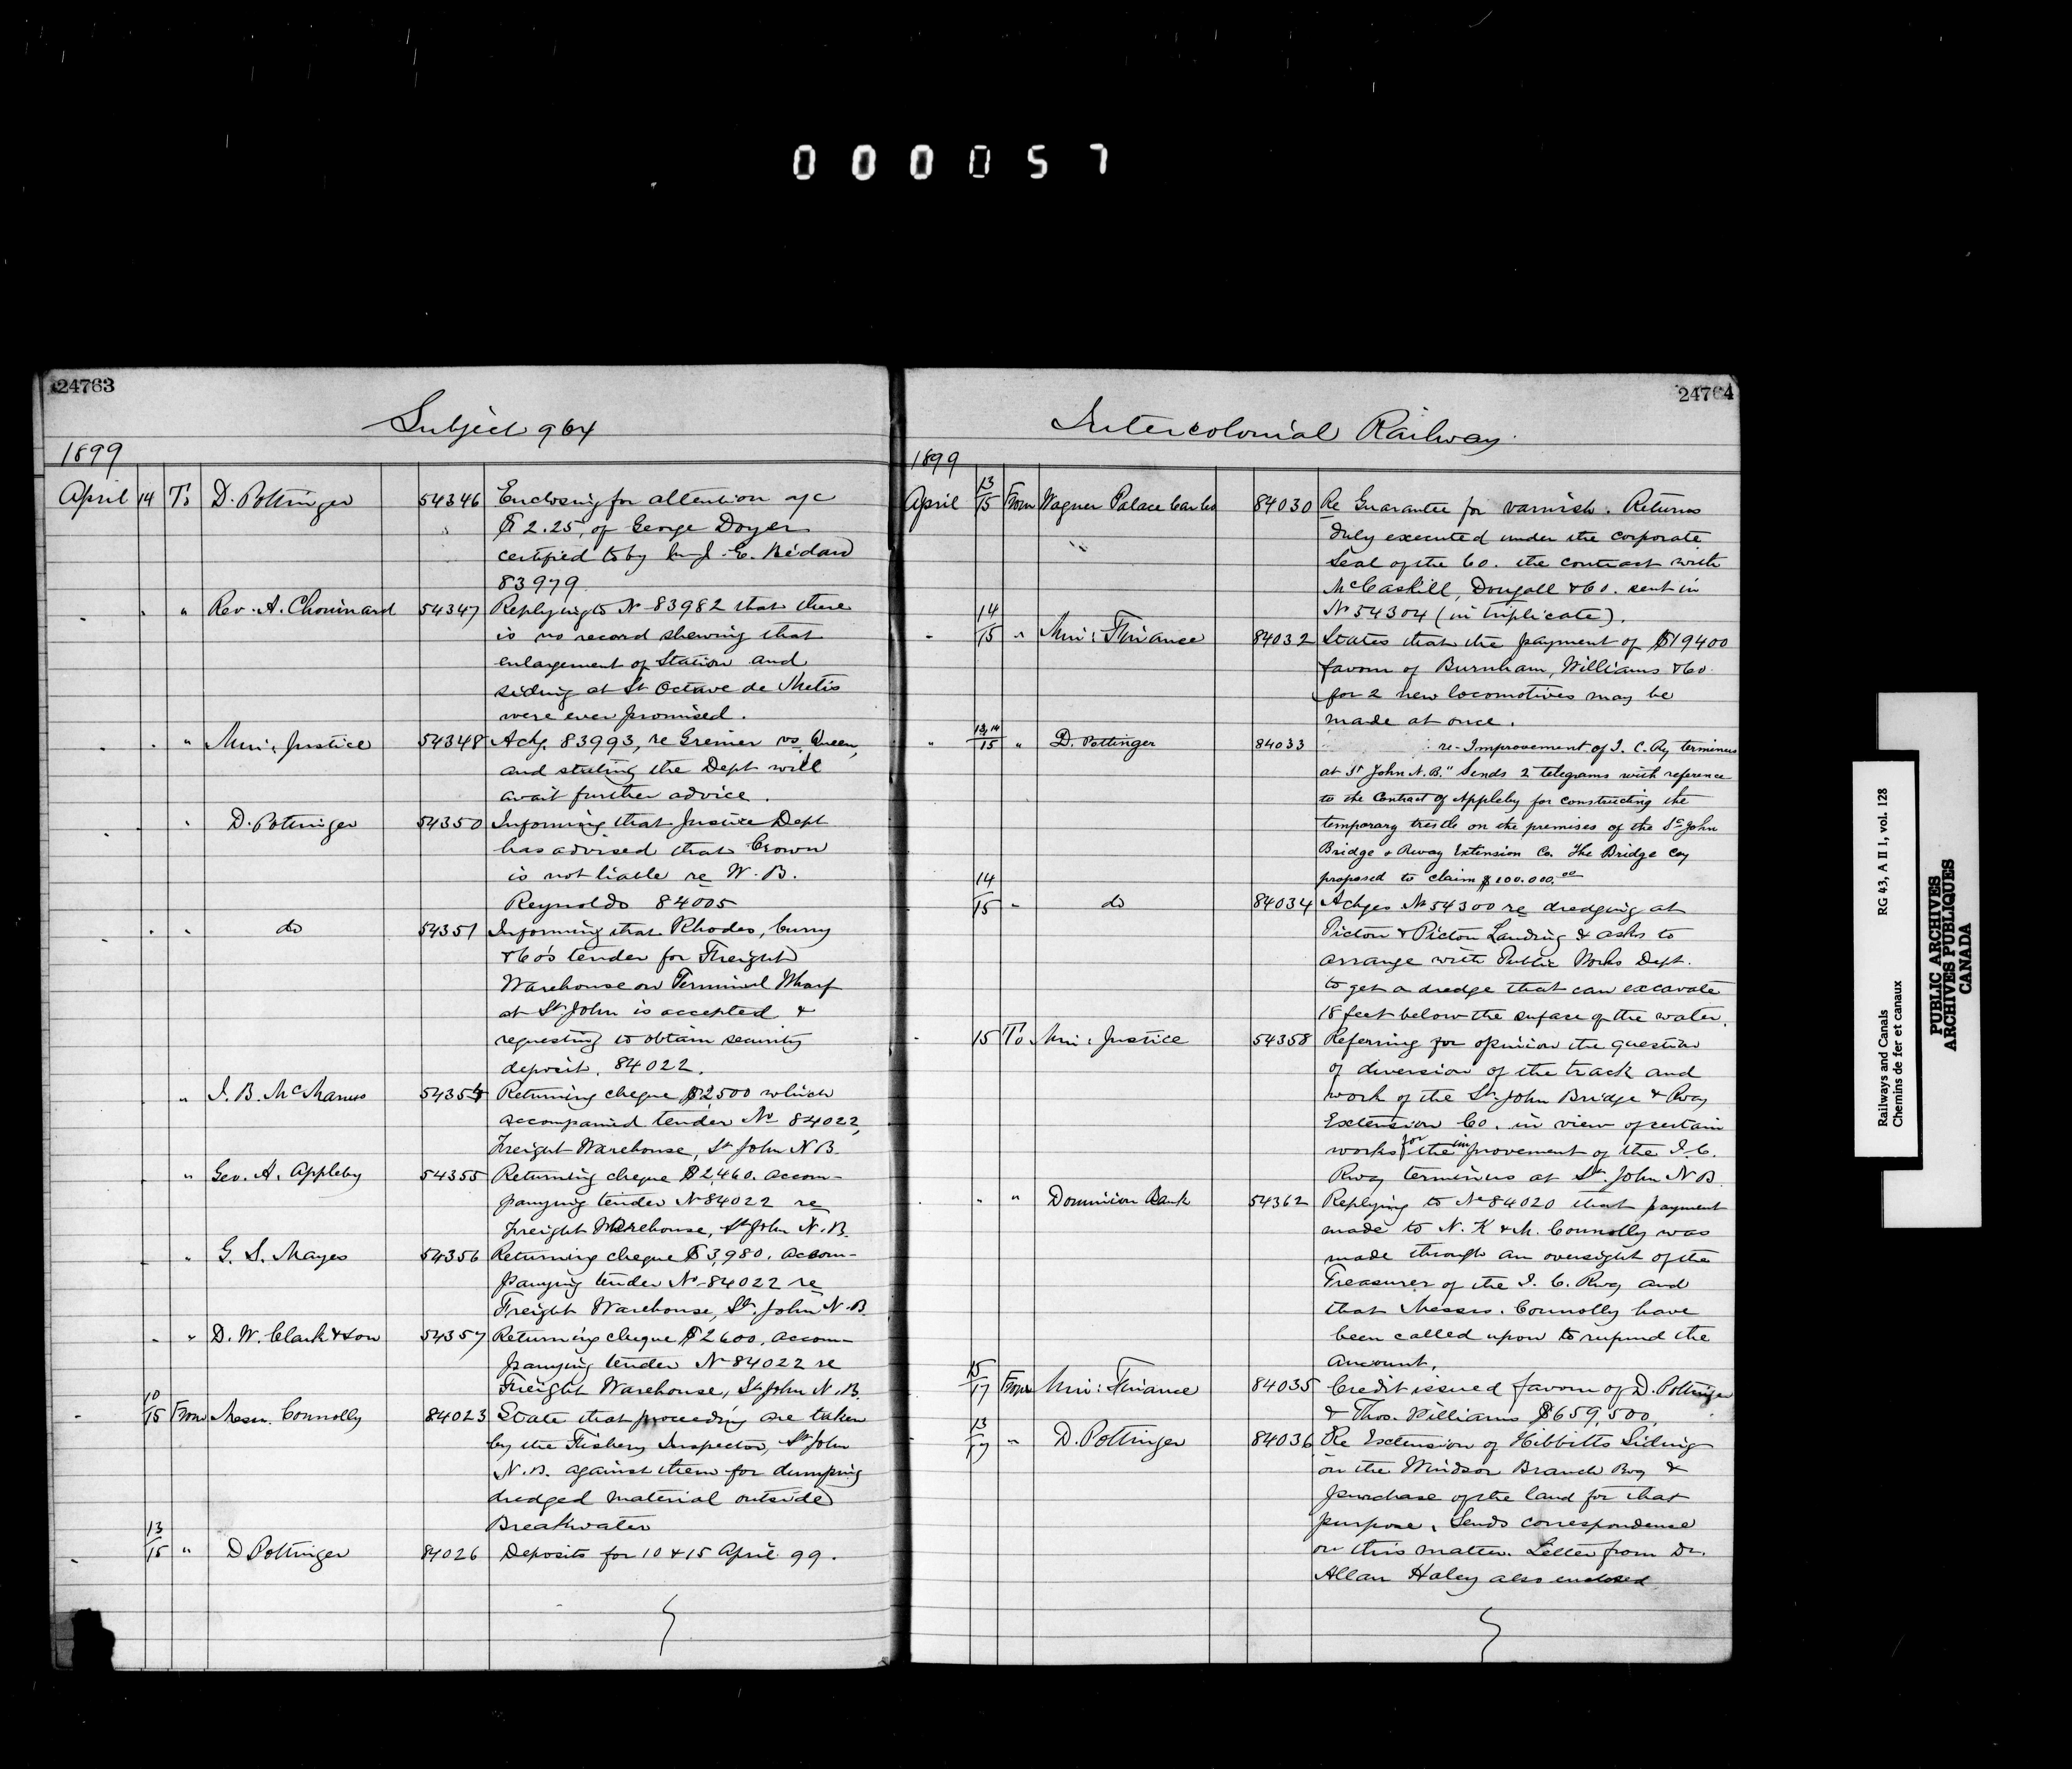 000057
24763
Subject 964
1899
April 14 To D. Pottinger 54346 Enclosing for attention a/c
$2.25, of George Doyer
certified to by Mr J. E. Bédard
83979
" Rev. A. Chouinard 54347 Replying to No 83982 that there
is no record shewing that
enlargement of Station and
siding at St Octave de Metis
were ever promised.
" Min: Justice 54348 Ackg. 83993, re Grenier vs Queen,
and stating the Dept will
await further advice.
" D. Pottinger 54350 Informing that Justice Dept
has advised that Crown
is not liable re W. B.
Reynolds 84005
" do 54351 Informing that Rhodes, Curry
& Co's tender for Freight
Warehouse on Terminal Wharf
at St. John is accepted &
requesting to obtain security
deposit. 84022.
" J. B. McManus 54354 Returning cheque $2,500 which
accompanied tender No 84022,
Freight Warehouse, St John N B.
" Geo. A. Appleby 54355 Returning cheque $2,460. accom-
panying tender No 84022 re
Freight Warehouse, St John N. B.
" G. S. Mayes 54356 Returning cheque $3,980. accom-
panying tender No 84022 re
Freight Warehouse, St. John N. B.
" D. W. Clark & Son 54357 Returning cheque $2600. accom-
panying tender No 84022 re
Freight Warehouse, St John N. B.
10/15 From Messrs. Connolly 84023 State that proceeding are taken
by the Fishery Inspector, St John
N. B. against them for dumping
dredged material outside
Breakwater
13/15 " D Pottinger 84026 Deposits for 10 & 15 April 99.
24764
Intercolonial Railway.
1899
April 13/15 From Wagner Palace Car Co 84030 Re Guarantee for varnish. Returns
duly executed under the corporate
Seal of the Co. the contract with
McCaskill, Dougall & Co. sent in
No 54304 (in triplicate).
14/15 " Min: Finance 84032 States that the payment of $19400
favour of Burnham, Williams & Co.
for 2 new locomotives may be
made at once.
13,14/15 " D. Pottinger 84033 re Improvement of I. C. Ry terminus
at St John N. B." Sends 2 telegrams with reference
to the Contract of Appleby for constructing the
temporary trestle on the premises of the St John
Bridge & Rway Extension Co. The Bridge Coy
proposed to claim $100.000.00
14/15 " do 84034 Ackges No 54300 re dredging at
Pictou & Pictou Landing & asks to
arrange with Public Works Dept.
to get a dredge that can excavate
18 feet below the surface of the water.
15 To Min: Justice 54358 Referring for opinion the question
of diversion of the track and
work of the St. John Bridge & Rway
Extension Co. in view of certain
works for the improvement of the I. C.
Rway terminus at St. John N B.
" " Dominion Bank 54362 Replying to No 84020 that payment
made to N. K & M. Connolly was
made through an oversight of the
Treasurer of the I. C. Rwy and
that Messrs. Connolly have
been called upon to refund the
amount.
15/17 From Min: Finance 84035 Credit issued favour of D. Pottinger
& Thos. Williams $659,500.
13/17 " D. Pottinger 84036 Re Extension of Hibbitts Siding
on the Windsor Branch Rwy &
purchase of the land for that
purpose. Sends correspondence
on this matter. Letter from Dr.
Allan Haley also enclosed
Railways and Canals RG 43, A II 1, vol. 128
Chemins de fer et canaux
PUBLIC ARCHIVES
ARCHIVES PUBLIQUES
CANADA